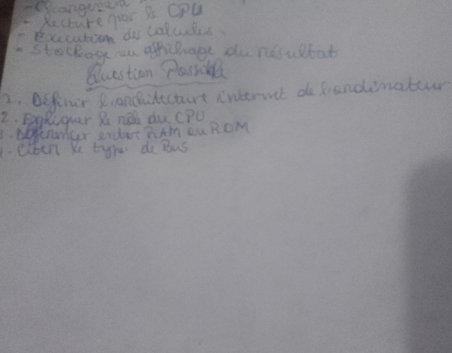 - Chargement
- lecture par le CPU
- Execution des calculs.
- Stockage ou affichage du résultat
Question Possible
1. Définir l'architecture internet de l'ordinateur
2. Expliquer le rôle du CPU
3. Différencier entre RAM ou ROM
4. Citer le type de Bus